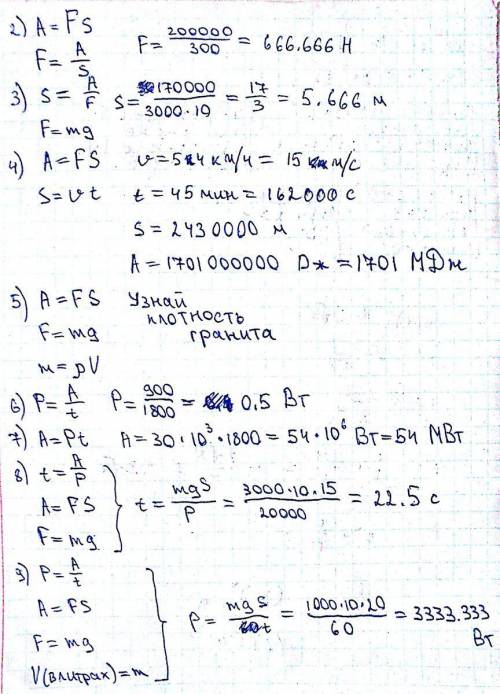 2) A = FS
F = A/S F = 200000/300 = 666.666 Н
3) S = A/F S = 170000/3000·10 = 17/3 = 5.666 м
F = mg
4) A = FS v = 54 км/ч = 15 м/с
S = vt t = 45 мин = 162000 с
S = 2430000 м
A = 1701000000 Дж = 1701 МДж
5) A = FS Узнай
плотность
F = mg гранита
m = ρV
6) P = A/t P = 900/1800 = 0.5 Вт
7) A = Pt A = 30·10³·1800 = 54·10⁶ Вт = 54 МВт
8) t = A/P
A = FS t = mgS/P = 3000·10·15/20000 = 22.5 с
F = mg
9) P = A/t
A = FS P = mgS/t = 1000·10·20/60 = 3333.333
F = mg Вт
V(в литрах) = m